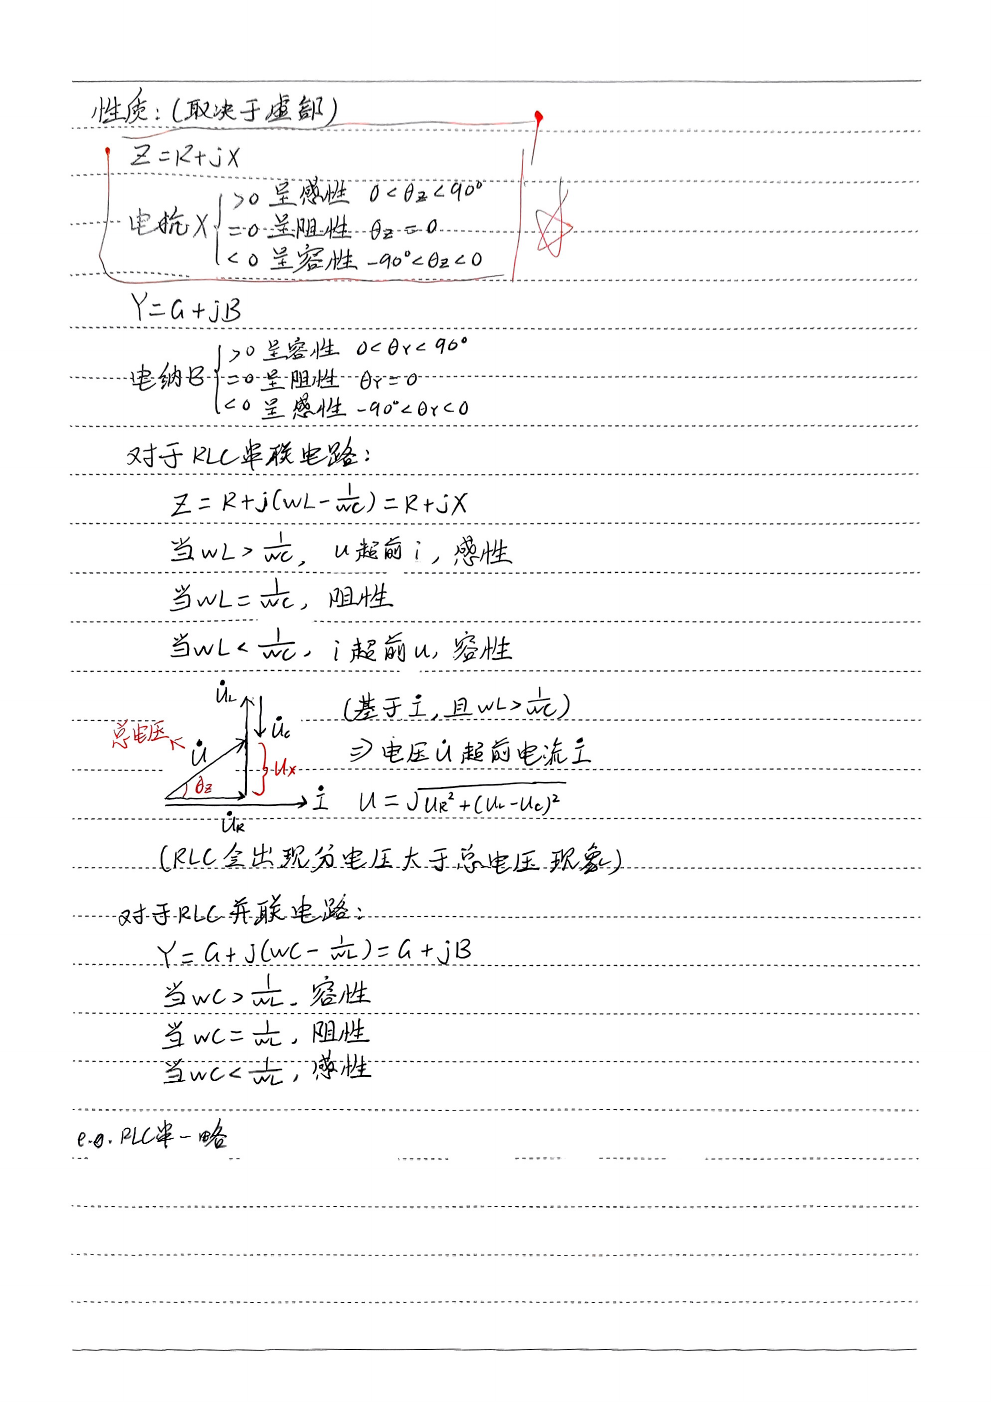 性质：(取决于虚部)
Z=R+jX
电抗X
>0 呈感性 0<θz<90°
=0 呈阻性 θz=0
<0 呈容性 -90°<θz<0
Y=G+jB
电纳B
>0 呈容性 0<θY<90°
=0 呈阻性 θY=0
<0 呈感性 -90°<θY<0
对于RLC串联电路：
Z=R+j(wL-1/wC)=R+jX
当wL>1/wC, u超前i, 感性
当wL=1/wC, 阻性
当wL<1/wC, i超前u, 容性
U̇L
U̇c
总电压
U̇
Ux
θz
İ
U̇R
(基于İ, 且wL>1/wC)
⇒电压U̇超前电流İ
U=√UR²+(UL-UC)²
(RLC会出现分电压大于总电压现象)
对于RLC并联电路：
Y=G+j(wC-1/wL)=G+jB
当wC>1/wL, 容性
当wC=1/wL, 阻性
当wC<1/wL, 感性
e.g. RLC串-略